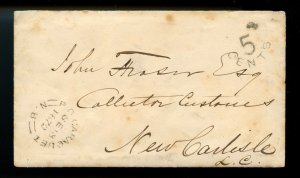 5
CENTS
John Fraser Esq
Collector Customs
New Carlisle
L.C.
CARAQUET
N.B.